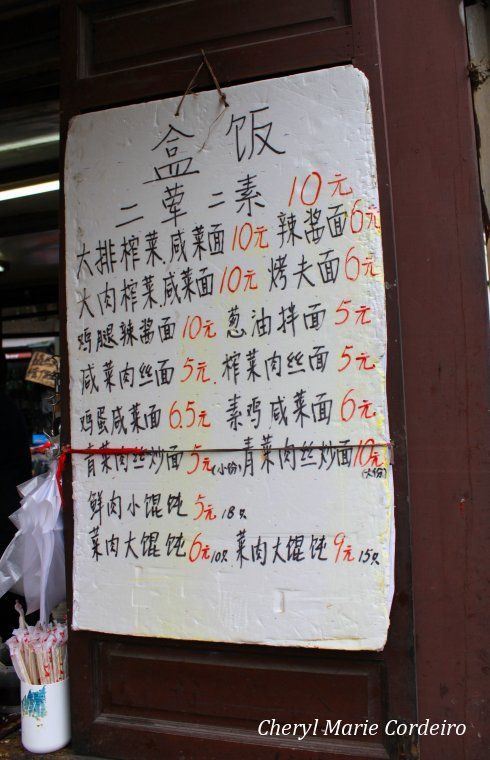 盒饭
二荤二素 10元
大排榨菜咸菜面 10元 辣酱面 6元
大肉榨菜咸菜面 10元 烤夫面 6元
鸡腿辣酱面 10元 葱油拌面 5元
咸菜肉丝面 5元 榨菜肉丝面 5元
鸡蛋咸菜面 6.5元 素鸡咸菜面 6元
青菜肉丝炒面 5元(小份) 青菜肉丝炒面 10元(大份)
鲜肉小馄饨 5元 18只
菜肉大馄饨 6元 10只 菜肉大馄饨 9元 15只
Cheryl Marie Cordeiro